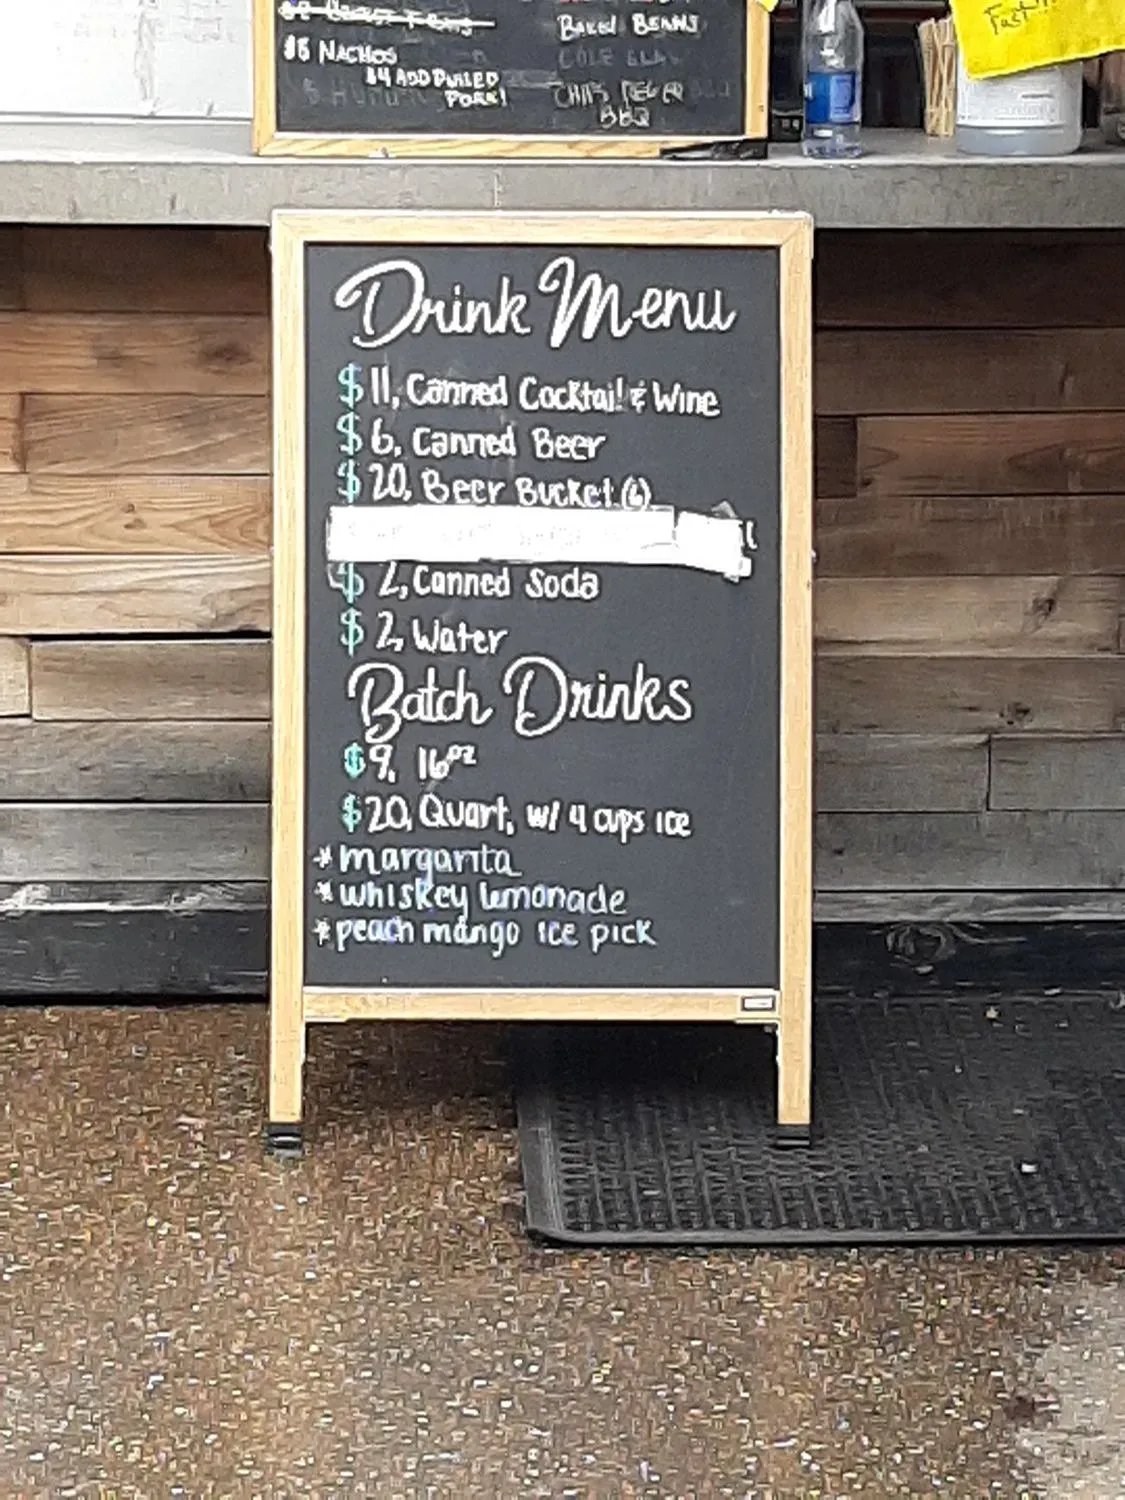 $6 NACHOS
$4 ADD PULLED
PORK!
BAKED BEANS
COLE SLAW
BBQ
Drink Menu
$11, Canned Cocktail & Wine
$6, Canned Beer
$20, Beer Bucket (6)
$2, Canned Soda
$2, Water
Batch Drinks
$9, 16oz
$20, Quart, w/ 4 cups ice
* margarita
* whiskey lemonade
* peach mango ice pick